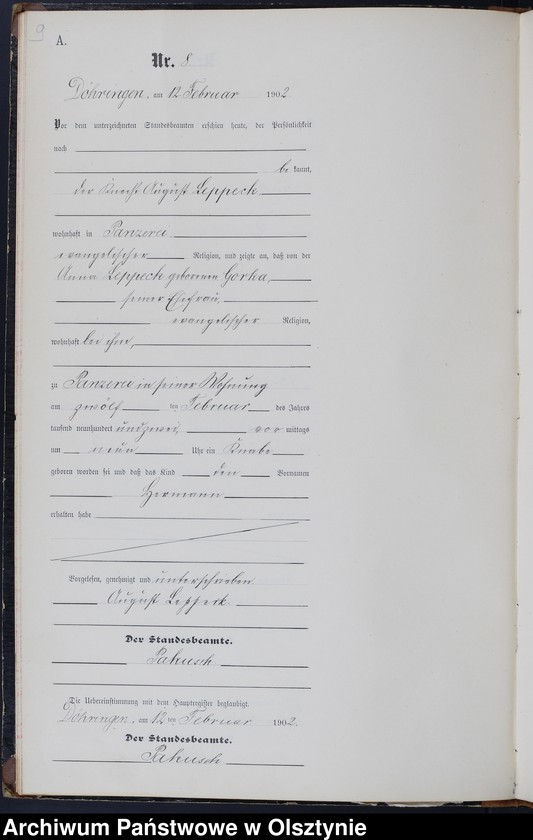 9
A.
Nr. 8
Döhringen, am 12 Februar 1902
Vor dem unterzeichneten Standesbeamten erschien heute, der Persönlichkeit
nach
be kannt,
der Knecht August Leppeck
wohnhaft in Panzerei
evangelischer Religion, und zeigte an, daß von der
Anna Leppeck geborenen Gorka,
seiner Ehefrau,
evangelischer Religion,
wohnhaft bei ihm,
zu Panzerei in seiner Wohnung
am zwölf ten Februar des Jahres
tausend neunhundert und zwei, vor mittags
um neun Uhr ein Knabe
geboren worden sei und daß das Kind den Vornamen
Hermann
erhalten habe
Vorgelesen, genehmigt und unterschrieben
August Leppeck
Der Standesbeamte.
Pakusch
Die Uebereinstimmung mit dem Hauptregister beglaubigt.
Döhringen, am 12 ten Februar 1902.
Der Standesbeamte.
Pakusch
Archiwum Państwowe w Olsztynie